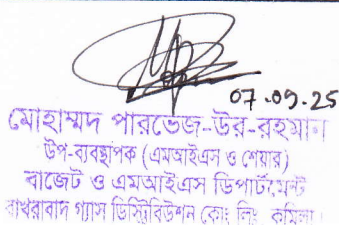 07.09.25
মোহাম্মদ পারভেজ-উর-রহমান
উপ-ব্যবস্থাপক (এমআইএস ও শেয়ার)
বাজেট ও এমআইএস ডিপার্টমেন্ট
বাখরাবাদ গ্যাস ডিস্ট্রিবিউশন কোঃ লিঃ কুমিল্লা।